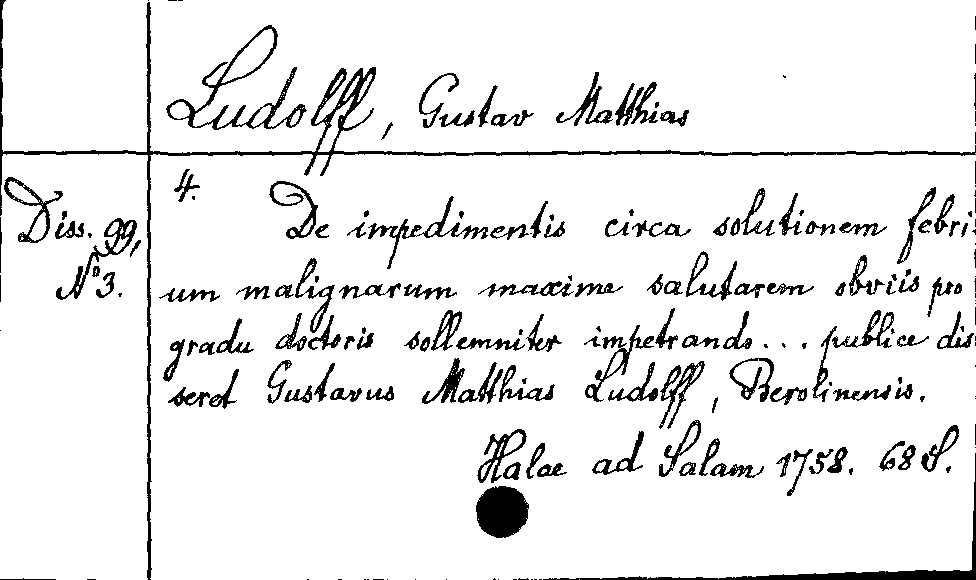 Ludolff, Gustav Matthias
4.
Diss. 99,
No 3.
De impedimentis circa solutionem febri-
um malignarum maxime salutarem obviis pro
gradu doctoris sollemniter impetrando... publice dis-
seret Gustavus Matthias Ludolff, Berolinensis.
Halae ad Salam 1758. 68 S.